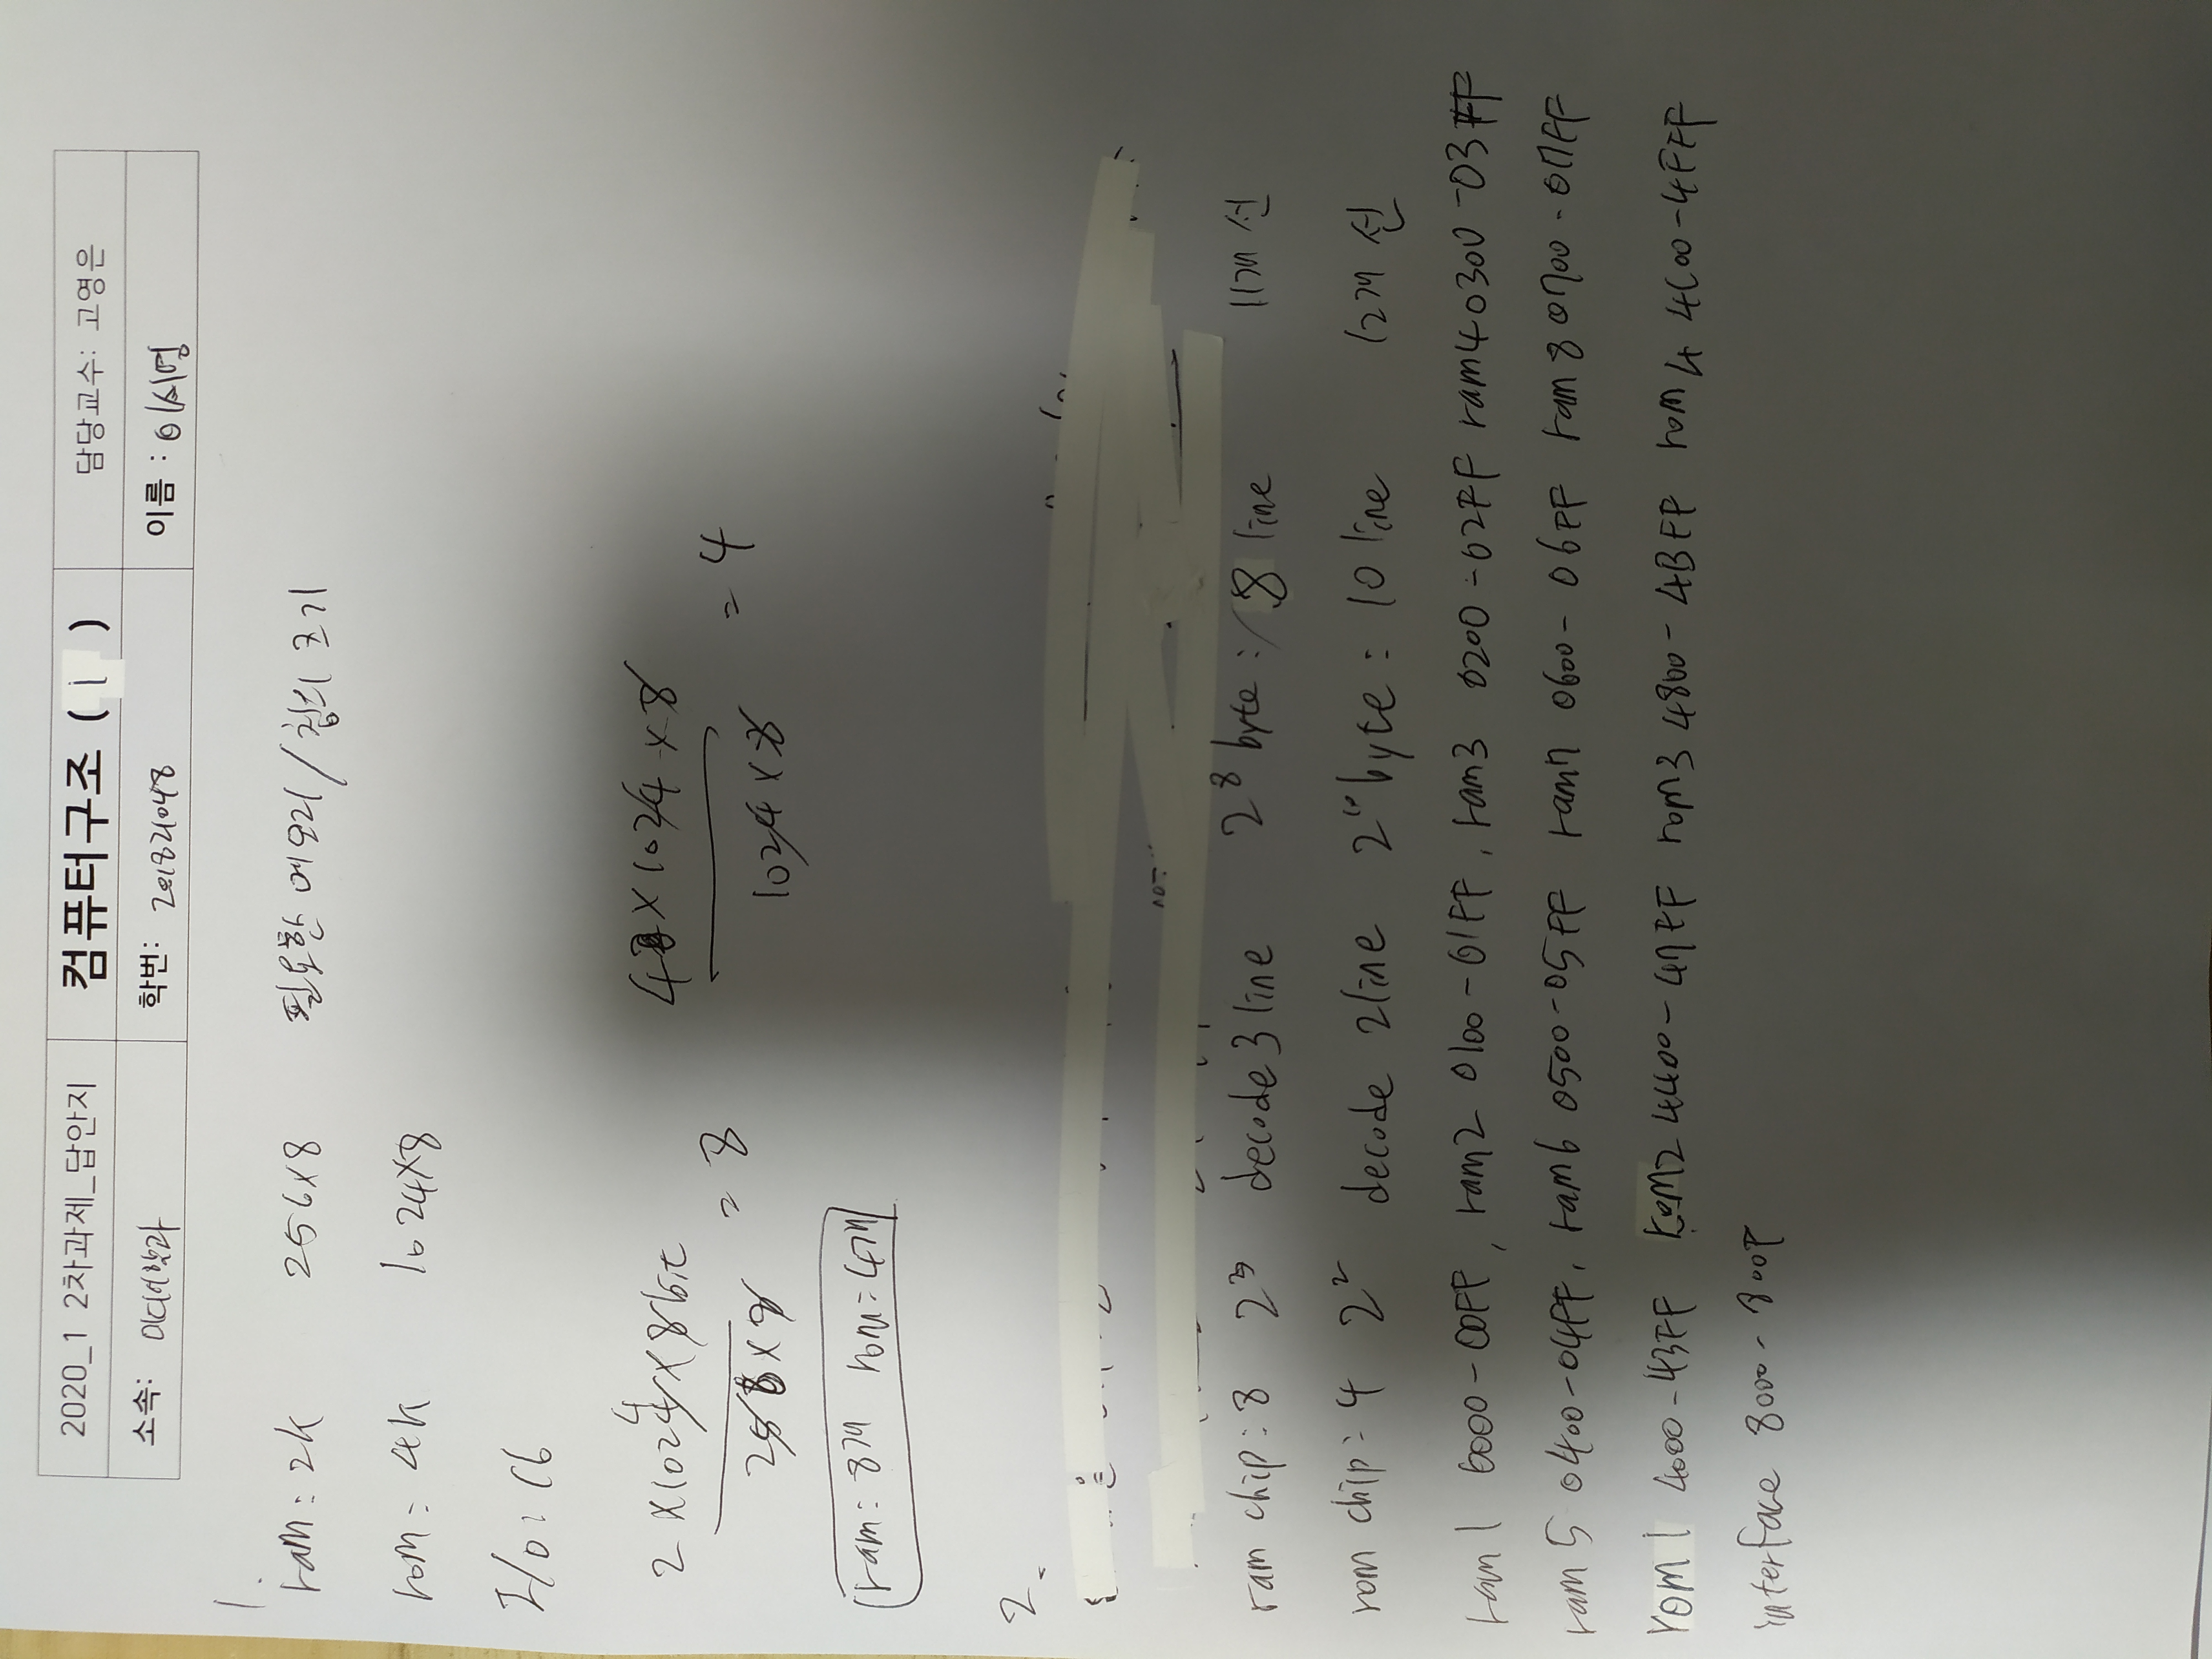 2020_1 2차과제_답안지 컴퓨터구조 ( 1 ) 담당교수: 고영은
소속: 미디어학과 학번: 201821048 이름 : 이시영
1.
ram : 2k 256x8 필요한 메모리 / 칩의 크기
rom : 4k 1024x8
I/O : 16
4
2 x 1024 x 8bit 4 x 1024 x 8
= 8 = 4
256 x 8 1024 x 8
ram : 8개 rom = 4개
2.
ram chip : 8 2³ decode 3 line 2⁸ byte : 8 line 11개 선
rom chip : 4 2² decode 2 line 2¹⁰ byte : 10 line 12개 선
ram 1 0000 - 00FF, ram2 0100 - 01FF, ram3 0200 - 02FF ram4 0300 - 03FF
ram 5 0400 - 04FF, ram6 0500 - 05FF ram7 0600 - 06FF ram 8 0700 - 07FF
rom 1 4000 - 43FF rom2 4400 - 47FF rom3 4800 - 4BFF rom 4 4C00 - 4FFF
interface 8000 - 800F